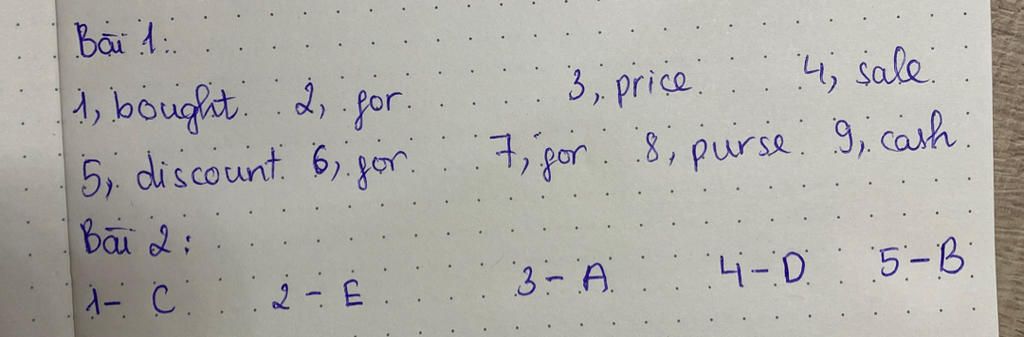 Bài 1:
1, bought. 2, for. 3, price. 4, sale.
5, discount. 6, for. 7, for. 8, purse. 9, cash.
Bài 2:
1- C 2 - E 3 - A 4 - D 5 - B